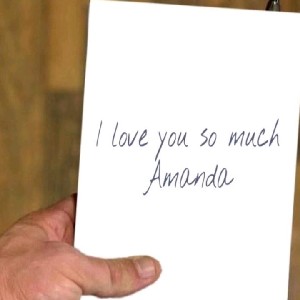 I love you so much
Amanda